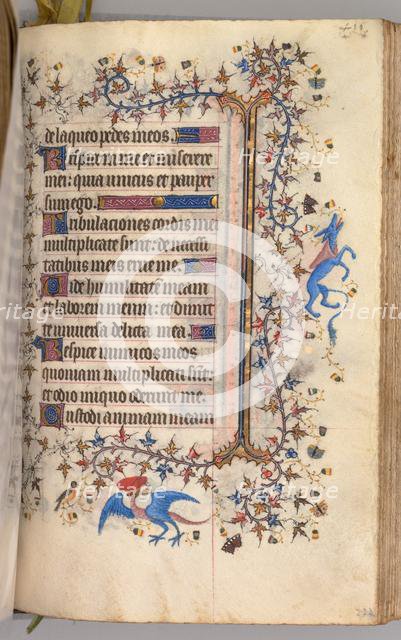 de laqueo pedes meos.
Respice in me et miserere
mei: quia unicus et pauper
sum ego.
Tribulaciones cordis mei
multiplicate sunt: de necessi
tatibus meis erue me.
Vide humilitatem meam
et laborem meum: et dimit
te universa delicta mea.
Respice inimicos meos
quoniam multiplicati sunt:
et odio iniquo oderunt me.
Custodi animam meam
Heritage
Images